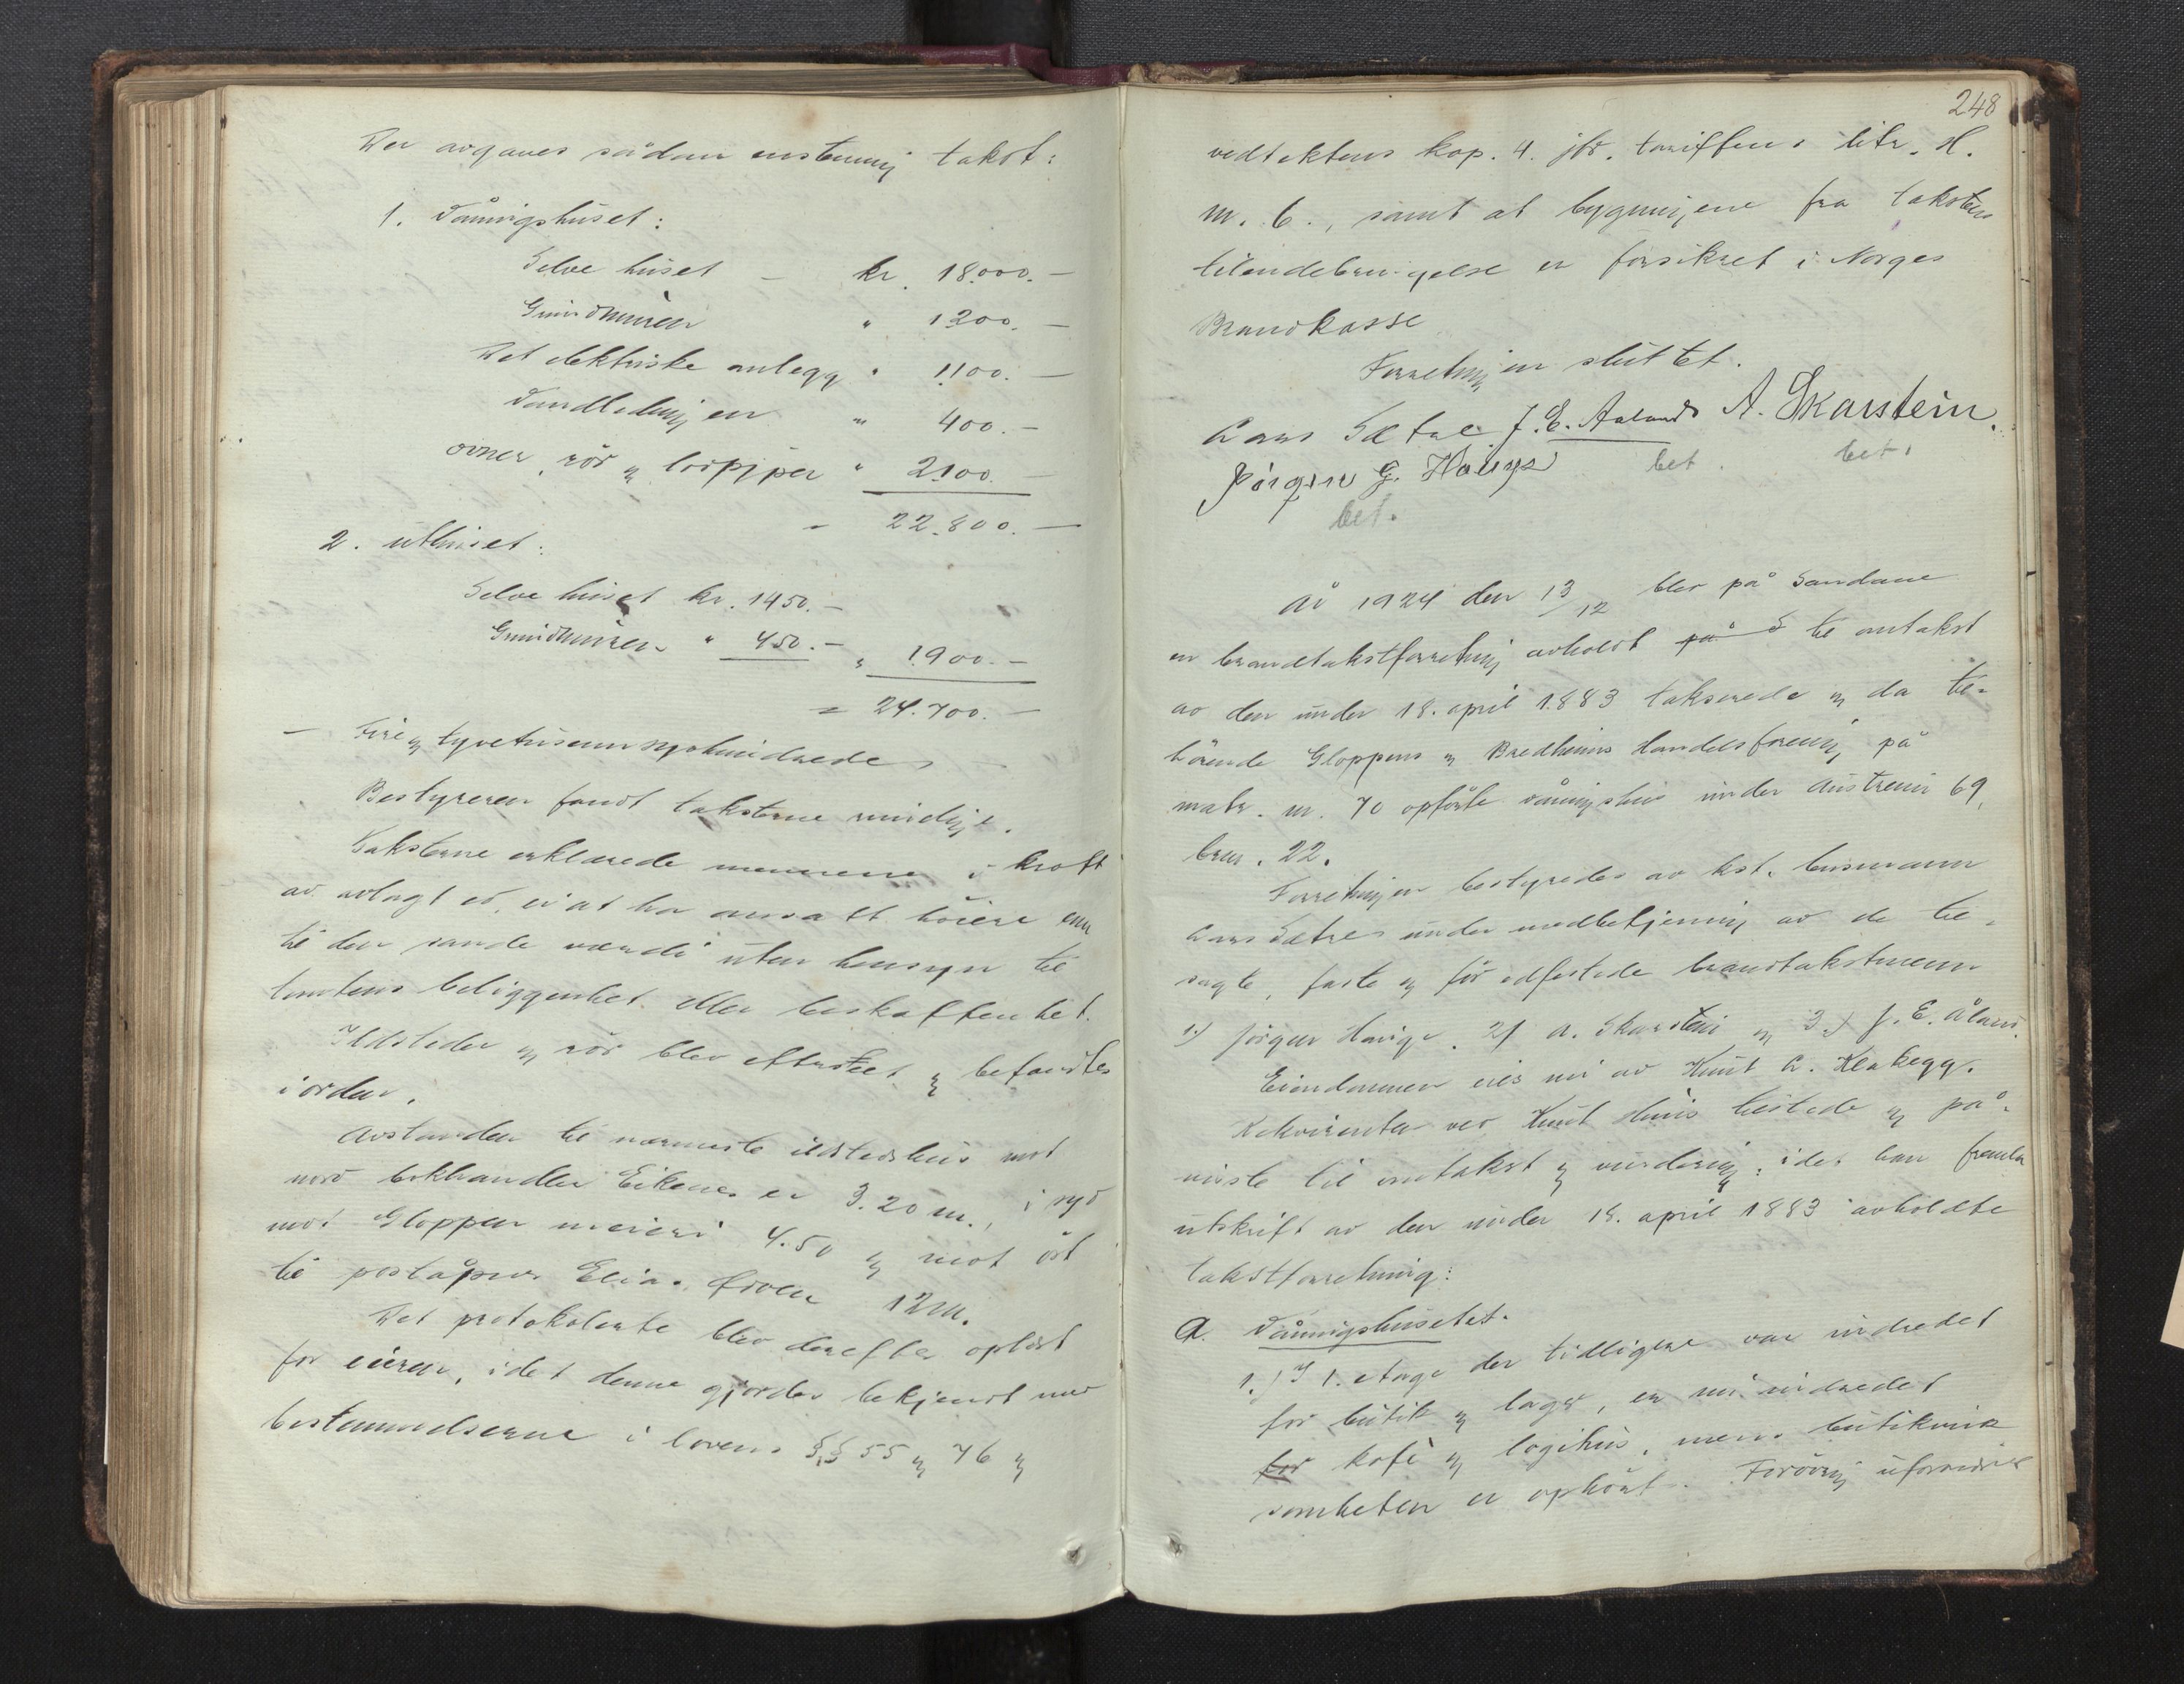 Der avgaves sådan enstemmig takst:
1. Våningshuset:
Selve huset - kr. 18.000.-
Grundmuren " 1200.-
Det elektriske anlegg " 1100.-
Vandledningen " 400.-
ovner, rör og lospjper " 2100.-
= 22.800.-
2. uthuset:
Selve huset kr. 1450.-
Grundmuren " 450.- " 1900.-
= 24.700.-
- Fire og tyvetusensyvhundrede -
Bestyreren fandt taksterne rimelige.
Taksterne erklærede mennene i kraft
av avlagt ed, ei at ha ansatt höiere enn
til den sande værdi uten hensyn til
tomtens beliggenhet eller beskaffenhet.
Ildsteder og rör blev efterseet og befandtes
i orden.
Avstanden til nærmeste ildstedshus mot
nord bokhandler Eikenes er 3.20 m., i syd
mot Gloppen meieri 4.50 og mot öst
til poståpner Elias 12 m.
Det protokolerte blev derefter oplæst
for eieren, idet denne gjordes bekjendt med
bestemmelserne i lovens §§ 55 og 76 og
248
vedtektens kap. 4. jfr. tariffens litr. H.
m. 6., samt at bygningene fra takstens
tilendebringelse er forsikret i Norges
Brandkasse
Forretningen sluttet.
Lars Sætre J. E. Aaland A. Skarstein.
Jörgen G. Hauge bet. bet.
bet.
År 1924 den 13/12 blev på Sandane
en brandtakstforretning avholdt på S til omtakst
av den under 18. april 1883 takserede og da til-
hörende Gloppens og Bredheims Handelsforening på
matr. nr. 70 opförte våningshus under Austrem 69,
brnr. 22.
Forretningen bestyredes av kst. lensmann
Lars Sætre under medbetjening av de til-
sagte, faste og för edfestede brandtakstmenn
1.) Jörgen Hauge. 2) A. Skarstein og 3.) J. E. Åland.
Eiendommen eies nu av Knut A. Kleppegg.
Rekvirenten ved Knut tilstede og på-
viste til omtakst og vurdering, idet han fremla
utskrift av den under 18. april 1883 avholdte
takstforretning:
A. Våningshuset.
1.) I 1. etage der tidligere var indredet
for butik og lager, er nu indredet
for kafè og logihus, mens butikvirk
somheten er ophört. Forövrig uforandret